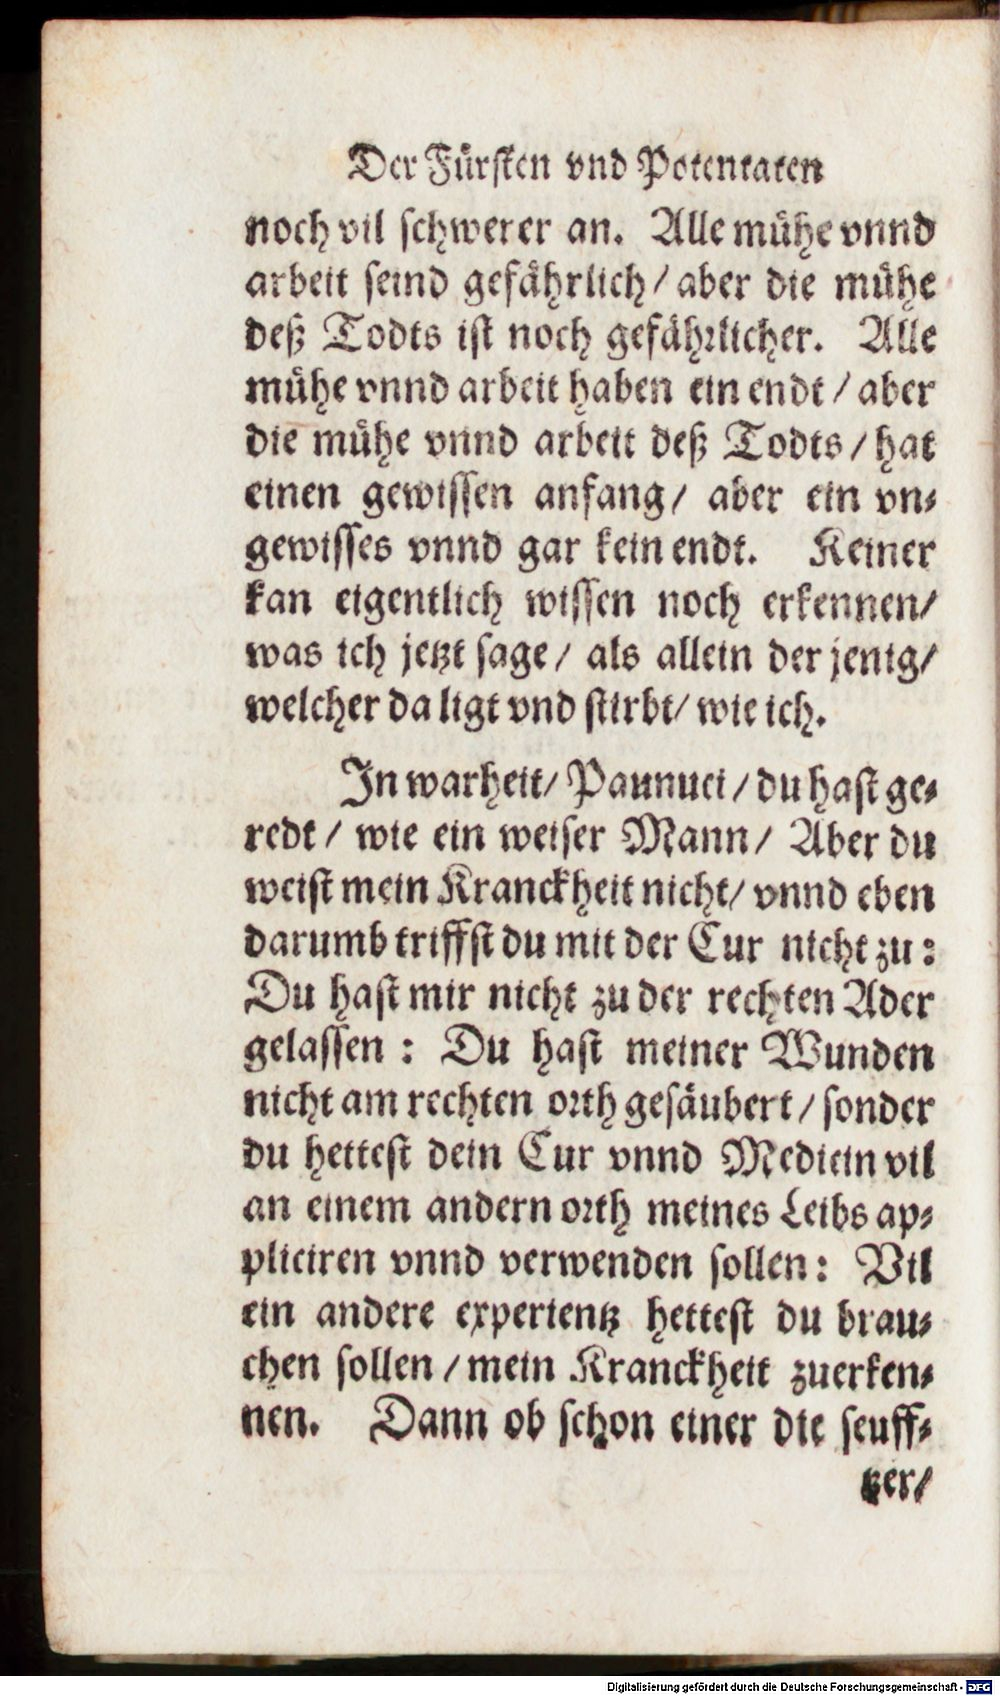 Der Fürsten vnd Potentaten
noch vil schwerer an. Alle mühe vnnd
arbeit seind gefährlich / aber die mühe
deß Todts ist noch gefährlicher. Alle
mühe vnnd arbeit haben ein endt / aber
die mühe vnnd arbeit deß Todts / hat
einen gewissen anfang / aber ein vn-
gewisses vnnd gar kein endt. Keiner
kan eigentlich wissen noch erkennen /
was ich jetzt sage / als allein der jenig /
welcher da ligt vnd stirbt / wie ich.
In warheit / Paunuci / du hast ge-
redt / wie ein weiser Mann / Aber du
weist mein Kranckheit nicht / vnnd eben
darumb triffst du mit der Cur nicht zu:
Du hast mir nicht zu der rechten Ader
gelassen : Du hast meiner Wunden
nicht am rechten orth gesäubert / sonder
du hettest dein Cur vnnd Medicin vil
an einem andern orth meines Leibs ap-
pliciren vnnd verwenden sollen: Vil
ein andere experientz hettest du brau-
chen sollen / mein Kranckheit zuerken-
nen. Dann ob schon einer die seuff-
tzer /
Digitalisierung gefördert durch die Deutsche Forschungsgemeinschaft - DFG